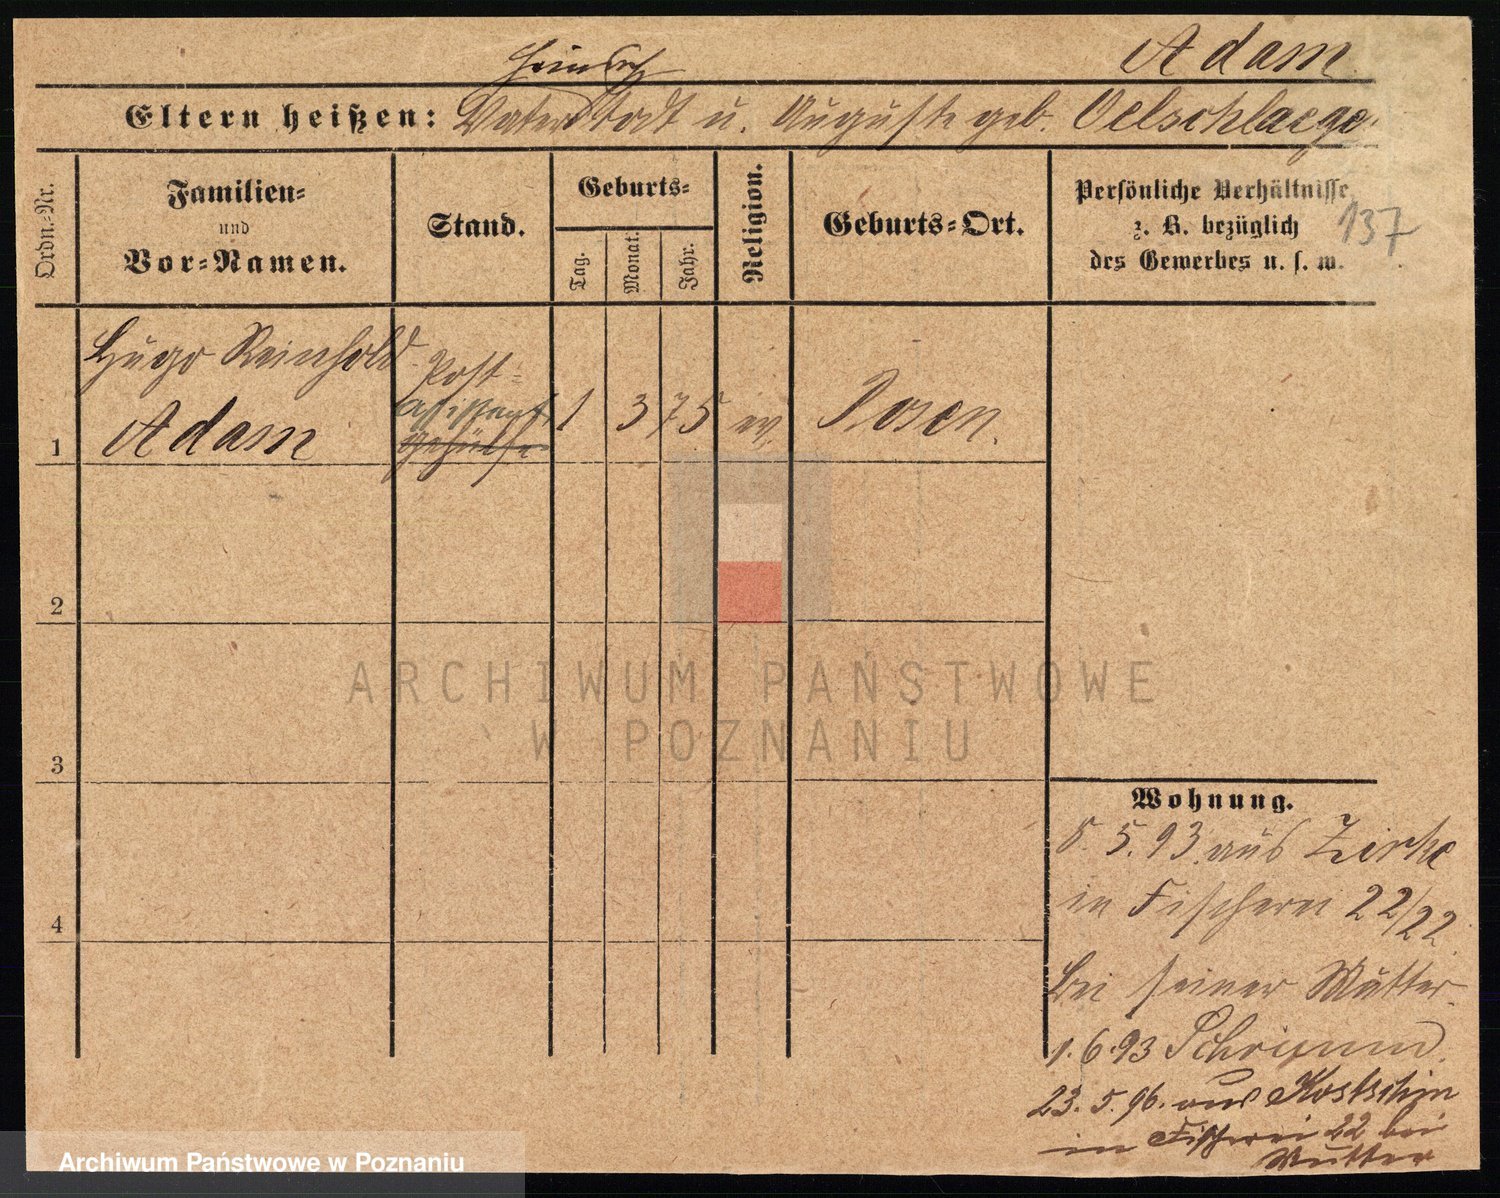 Adam
Heinrich
Eltern heißen: Vater todt u. Auguste geb. Oelschlaeger
Ordn.-Nr.
Familien-
und
Vor-Namen.
Stand.
Geburts-
Tag.
Monat.
Jahr.
Religion.
Geburts-Ort.
Persönliche Verhältnisse
z. B. bezüglich
des Gewerbes u. s. w.
137
Hugo Reinhold
Adam
Post-
assistent
Gehülfe
1 1 3 75 ev. Posen.
2
3
4
Wohnung.
5. 5. 93 aus Zirke
in Fischerei 22/22
bei seiner Mutter.
1. 6. 93 Schrimm.
23. 5. 96. aus Kostschin
in Fischerei 22 bei
Mutter
ARCHIWUM PAŃSTWOWE
W POZNANIU
Archiwum Państwowe w Poznaniu